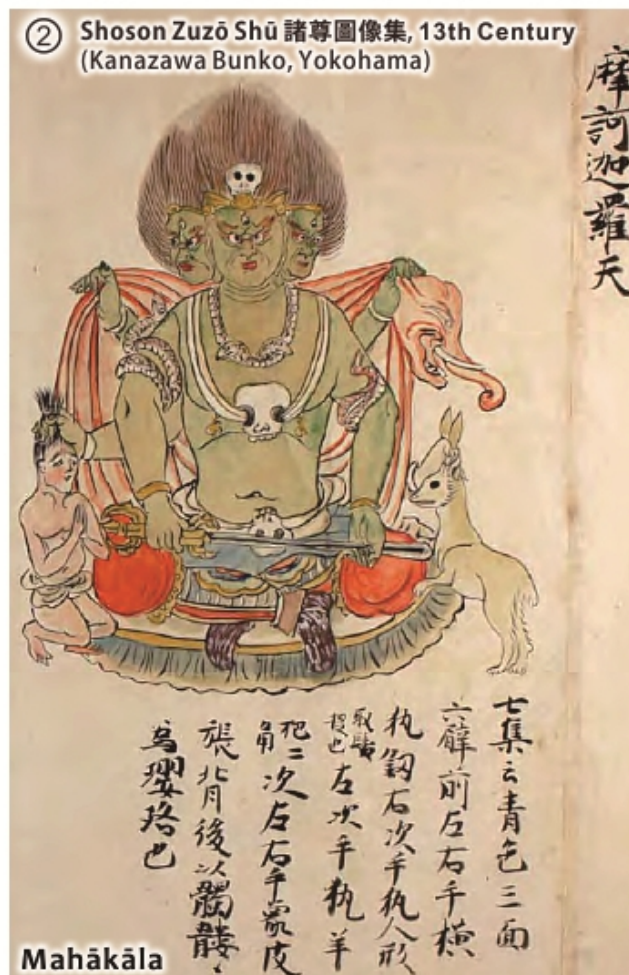 ② Shoson Zuzō Shū 諸尊圖像集, 13th Century
(Kanazawa Bunko, Yokohama)
摩訶迦羅天
七集云青色三面
六臂前左右手横
執釼右次手執人形
左次手執羊
角 次左右手象皮
張背後以髑髏
為瓔珞也
Mahākāla